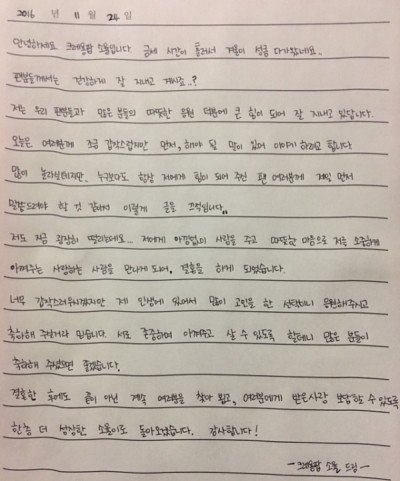 2016 년 11 월 24 일
안녕하세요 크레용팝 소율입니다 금새 시간이 흘러서 겨울이 성큼 다가왔네요..
팬분들께서는 건강하게 잘 지내고 계시죠..?
저는 우리 팬분들과 많은 분들의 따뜻한 응원 덕분에 큰 힘이 되어 잘 지내고 있답니다.
오늘은 여러분께 조금 갑작스럽지만 먼저, 해야 될 말이 있어 이야기 하려고 합니다
많이 놀라실테지만, 누구보다도 항상 저에게 힘이 되어 주신 팬 여러분께 제일 먼저
말씀드려야 할 것 같아서 이렇게 글을 끄적입니다..
저도 지금 굉장히 떨리는데요... 저에게 아낌없이 사랑을 주고 따뜻한 마음으로 저를 소중하게
아껴주는 사랑하는 사람을 만나게 되어, 결혼을 하게 되었습니다.
너무 갑작스러우시겠지만 제 인생에 있어서 많이 고민을 한 선택이니 응원해주시고
축하해 주실거라 믿습니다. 서로 존중하며 아껴주고 살 수 있도록 할테니 많은 분들이
축하해 주셨으면 좋겠습니다.
결혼한 후에도 끝이 아닌 계속 여러분을 찾아 뵙고, 여러분에게 받은사랑 보답할 수 있도록
한층 더 성장한 소율이로 돌아오겠습니다. 감사합니다!
- 크레용팝 소율 드림 -